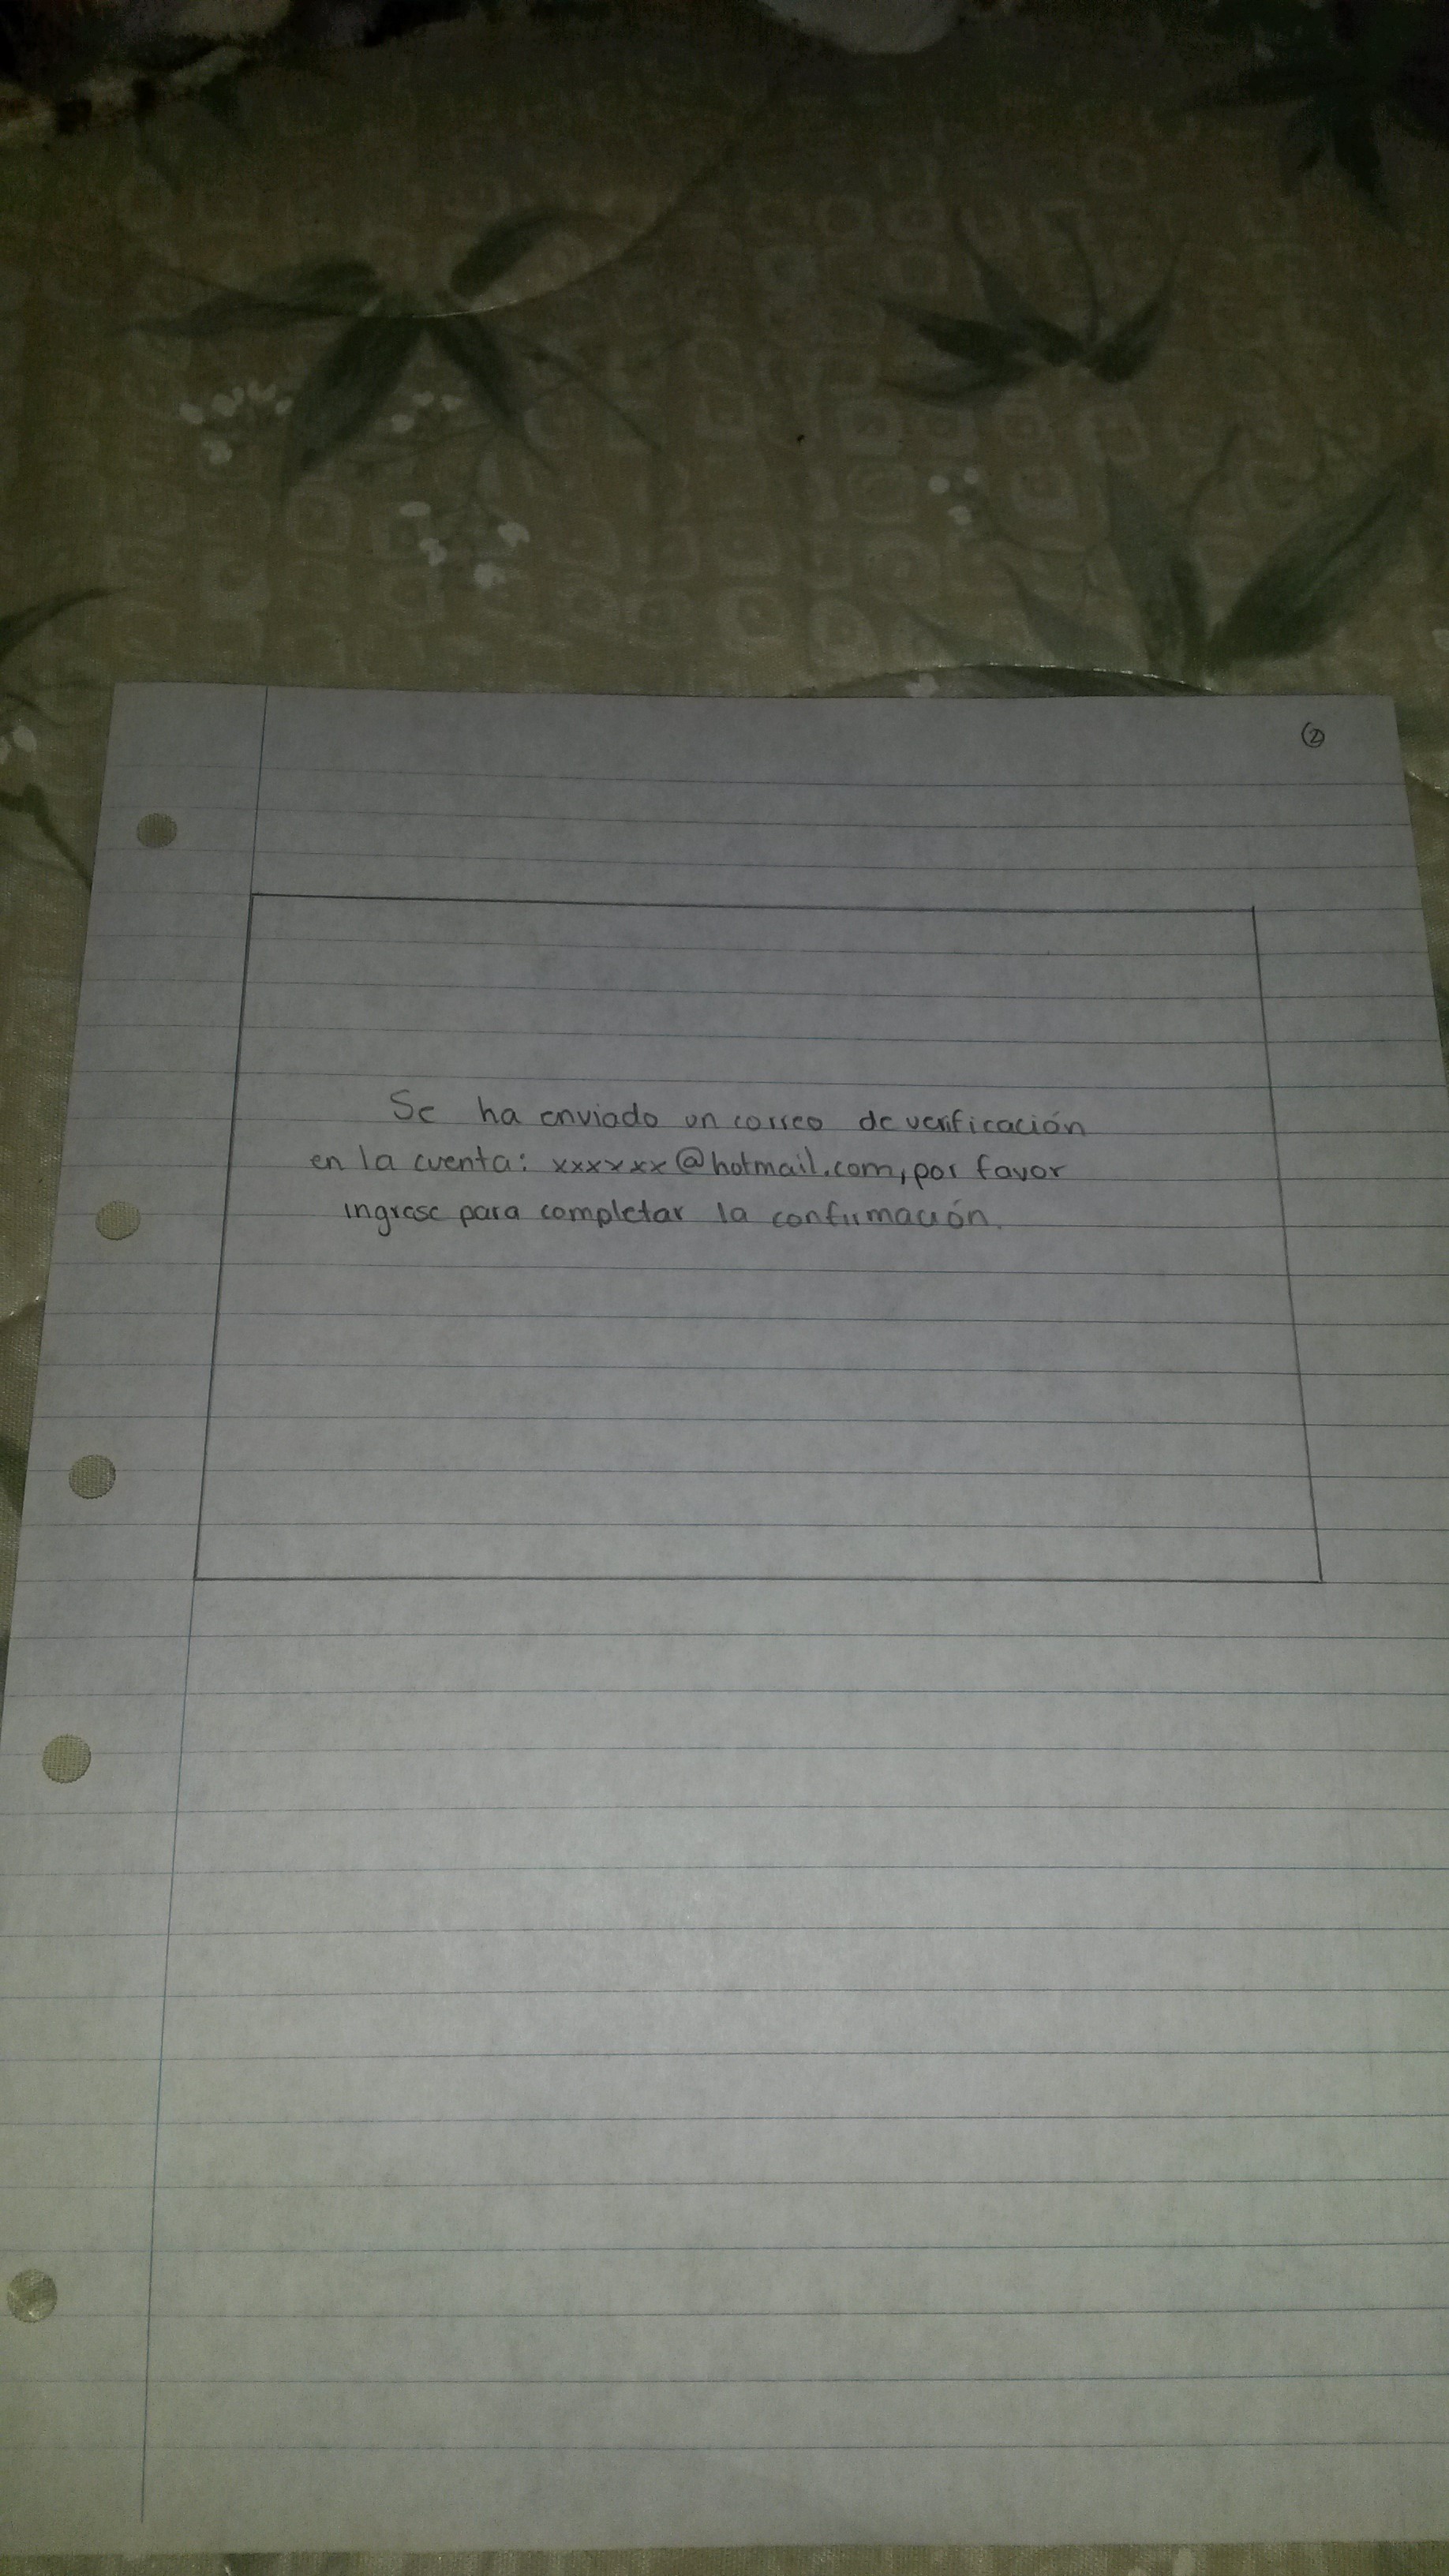 ②
Se ha enviado un correo de verificación
en la cuenta: xxxxxx@hotmail.com, por favor
ingrese para completar la confirmación.